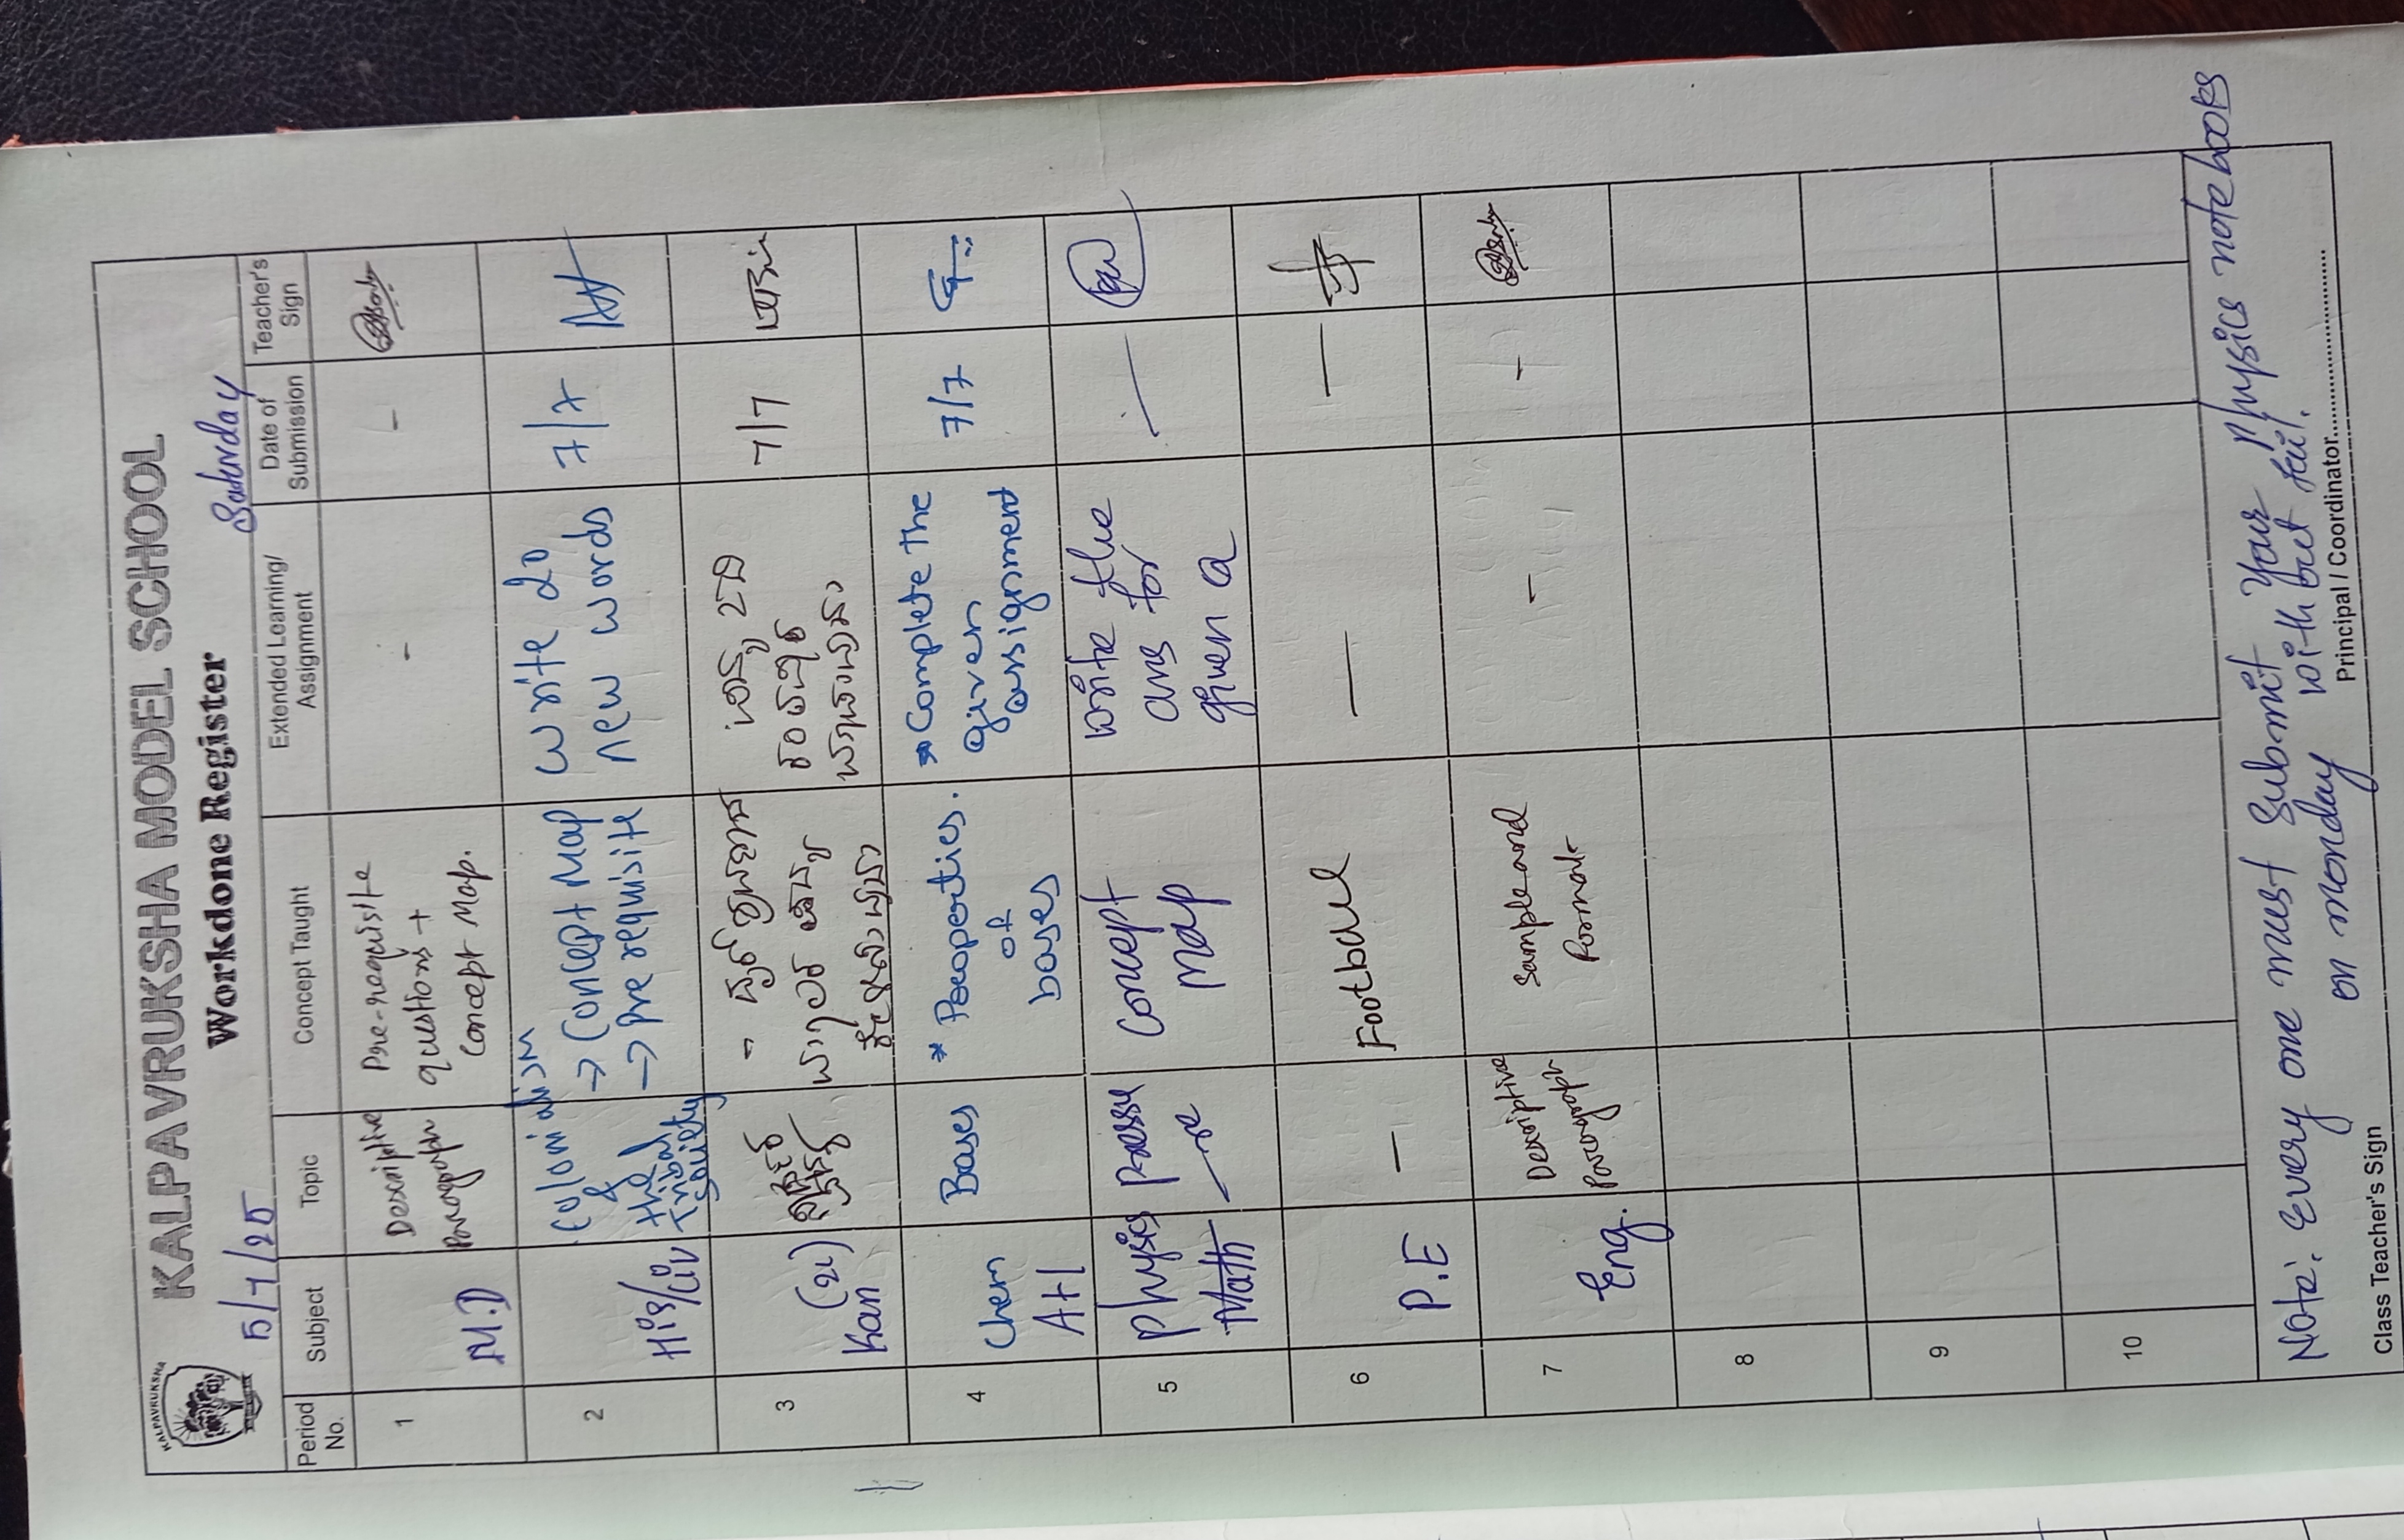 KALPAVRUKSHA
KALPAVRUKSHA MODEL SCHOOL
Workdone Register
5/7/25
Saturday
Period No. Subject Topic Concept Taught Extended Learning/ Assignment Date of Submission Teacher's Sign
1 M.D Descriptive Paragraph Pre-requisite questions + Concept Map. - -
2 His/Civ Colonialism & the Tribal Society → Concept Map → Pre requisite write 20 new words 7/7
3 (2L) Kan 7/7
4 Chem A+1 Bases * Properties of bases. * Complete the given assignment 7/7
5 Physics Math Pressure Concept Map write the ans for given Q —
6 P.E — Football — —
7 Eng. Descriptive Paragraph Sample and Format - -
8
9
10
Note: Every one must Submit Your Physics notebooks
on Monday without fail.
Class Teacher's Sign Principal / Coordinator